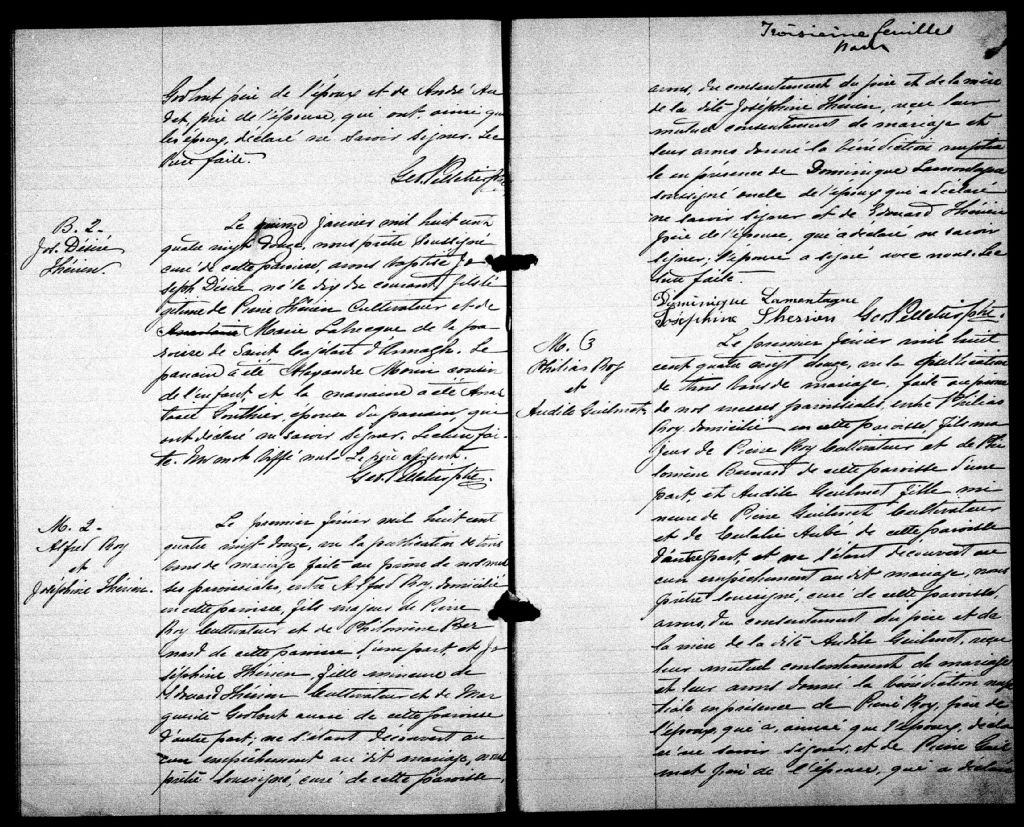 Godbout père de l'époux et de André Au
det, père de l'épouse, qui ont, ainsi que
les époux, déclaré ne savoir signer. Lec
ture faite.
Geo. Pelletier Ptre
B. 2.
Jos. Désiré
Thérien.
Le quinze Janvier mil huit cent
quatre vingt douze, nous prêtre soussigné
curé de cette paroisse, avons baptisé Jo
seph Désiré, né le dix du courant, fils lé
gitime de Pierre Thérien Cultivateur et de
Marie Labrecque de la pa
roisse de Saint Cajetan d'Armagh. Le
parrain a été Alexandre Morin cousin
de l'enfant, et la marraine a été Anas
tasie Gonthier, épouse du parrain, qui
ont déclaré ne savoir signer. Lecture fai
te. Un mot biffé nul. Le père absent.
Geo. Pelletier Ptre.
M. 2
Alfred Roy
et
Joséphine Thérien.
Le premier février mil huit cent
quatre vingt douze, vu la publication de trois
bans de mariage faite au prône de nos mes
ses paroissiales, entre Alfred Roy, domicilié
en cette paroisse, fils majeur de Pierre
Roy Cultivateur et de Philomène Ber
nard de cette paroisse d'une part, et Jo
séphine Thérien fille mineure de
Edouard Thérien Cultivateur et de Mar
guerite Godbout aussi de cette paroisse
d'autre part, ne s'étant découvert au
cun empêchement au dit mariage, nous
prêtre soussigné, curé de cette paroisse,
Troisième feuillet
avons, du consentement du père et de la mère
de la dite Joséphine Thérien, reçu leur
mutuel consentement de mariage et
leur avons donné la bénédiction nuptia
le en présence de Dominique Lamontagne
soussigné oncle de l'époux qui a déclaré
ne savoir signer et de Edouard Thérien
père de l'épouse, qui a déclaré ne savoir
signer; l'épouse a signé avec nous. Lec
ture faite.
Dominique Lamontagne
Joséphine Therrien Geo. Pelletier Ptre.
M. 3
Philias Roy
et
Audile Guilmet
Le premier février mil huit
cent quatre vingt douze, vu la publication
de trois bans de mariage, faite au prône
de nos messes paroissiales, entre Philias
Roy domicilié en cette paroisse, fils ma
jeur de Pierre Roy Cultivateur et de Phi
lomène Bernard de cette paroisse d'une
part, et Audile Guilmet fille mi
neure de Pierre Guilmet Cultivateur
et de Eulalie Aubé de cette paroisse
d'autre part, et ne s'étant découvert au
cun empêchement au dit mariage, nous
prêtre soussigné, curé de cette paroisse,
avons, du consentement du père et de
la mère de la dite Audile Guilmet, reçu
leur mutuel consentement de mariage
et leur avons donné la bénédiction nup
tiale en présence de Pierre Roy, père de
l'époux, qui a, ainsi que l'époux, décla
ré ne savoir signer, et de Pierre Guil
met père de l'épouse, qui a déclaré